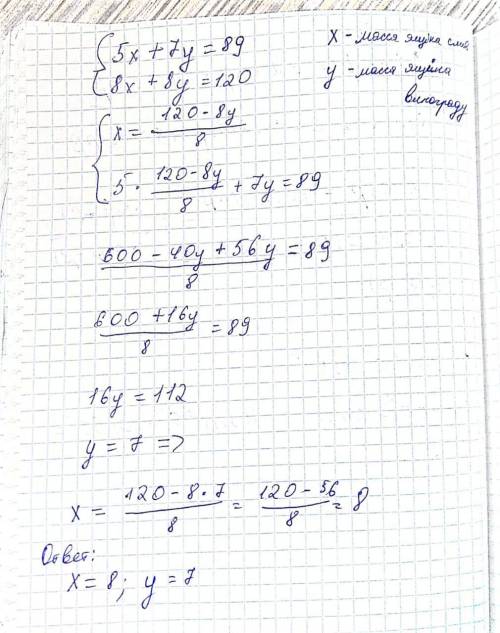 {5x + 7y = 89
{8x + 8y = 120
x - масса ящика слив
y - масса ящика
винограду
{x = (120 - 8y)/8
{5 · (120 - 8y)/8 + 7y = 89
(600 - 40y + 56y)/8 = 89
(600 + 16y)/8 = 89
16y = 112
y = 7 =>
x = (120 - 8 · 7)/8 = (120 - 56)/8 = 8
Ответ:
x = 8; y = 7